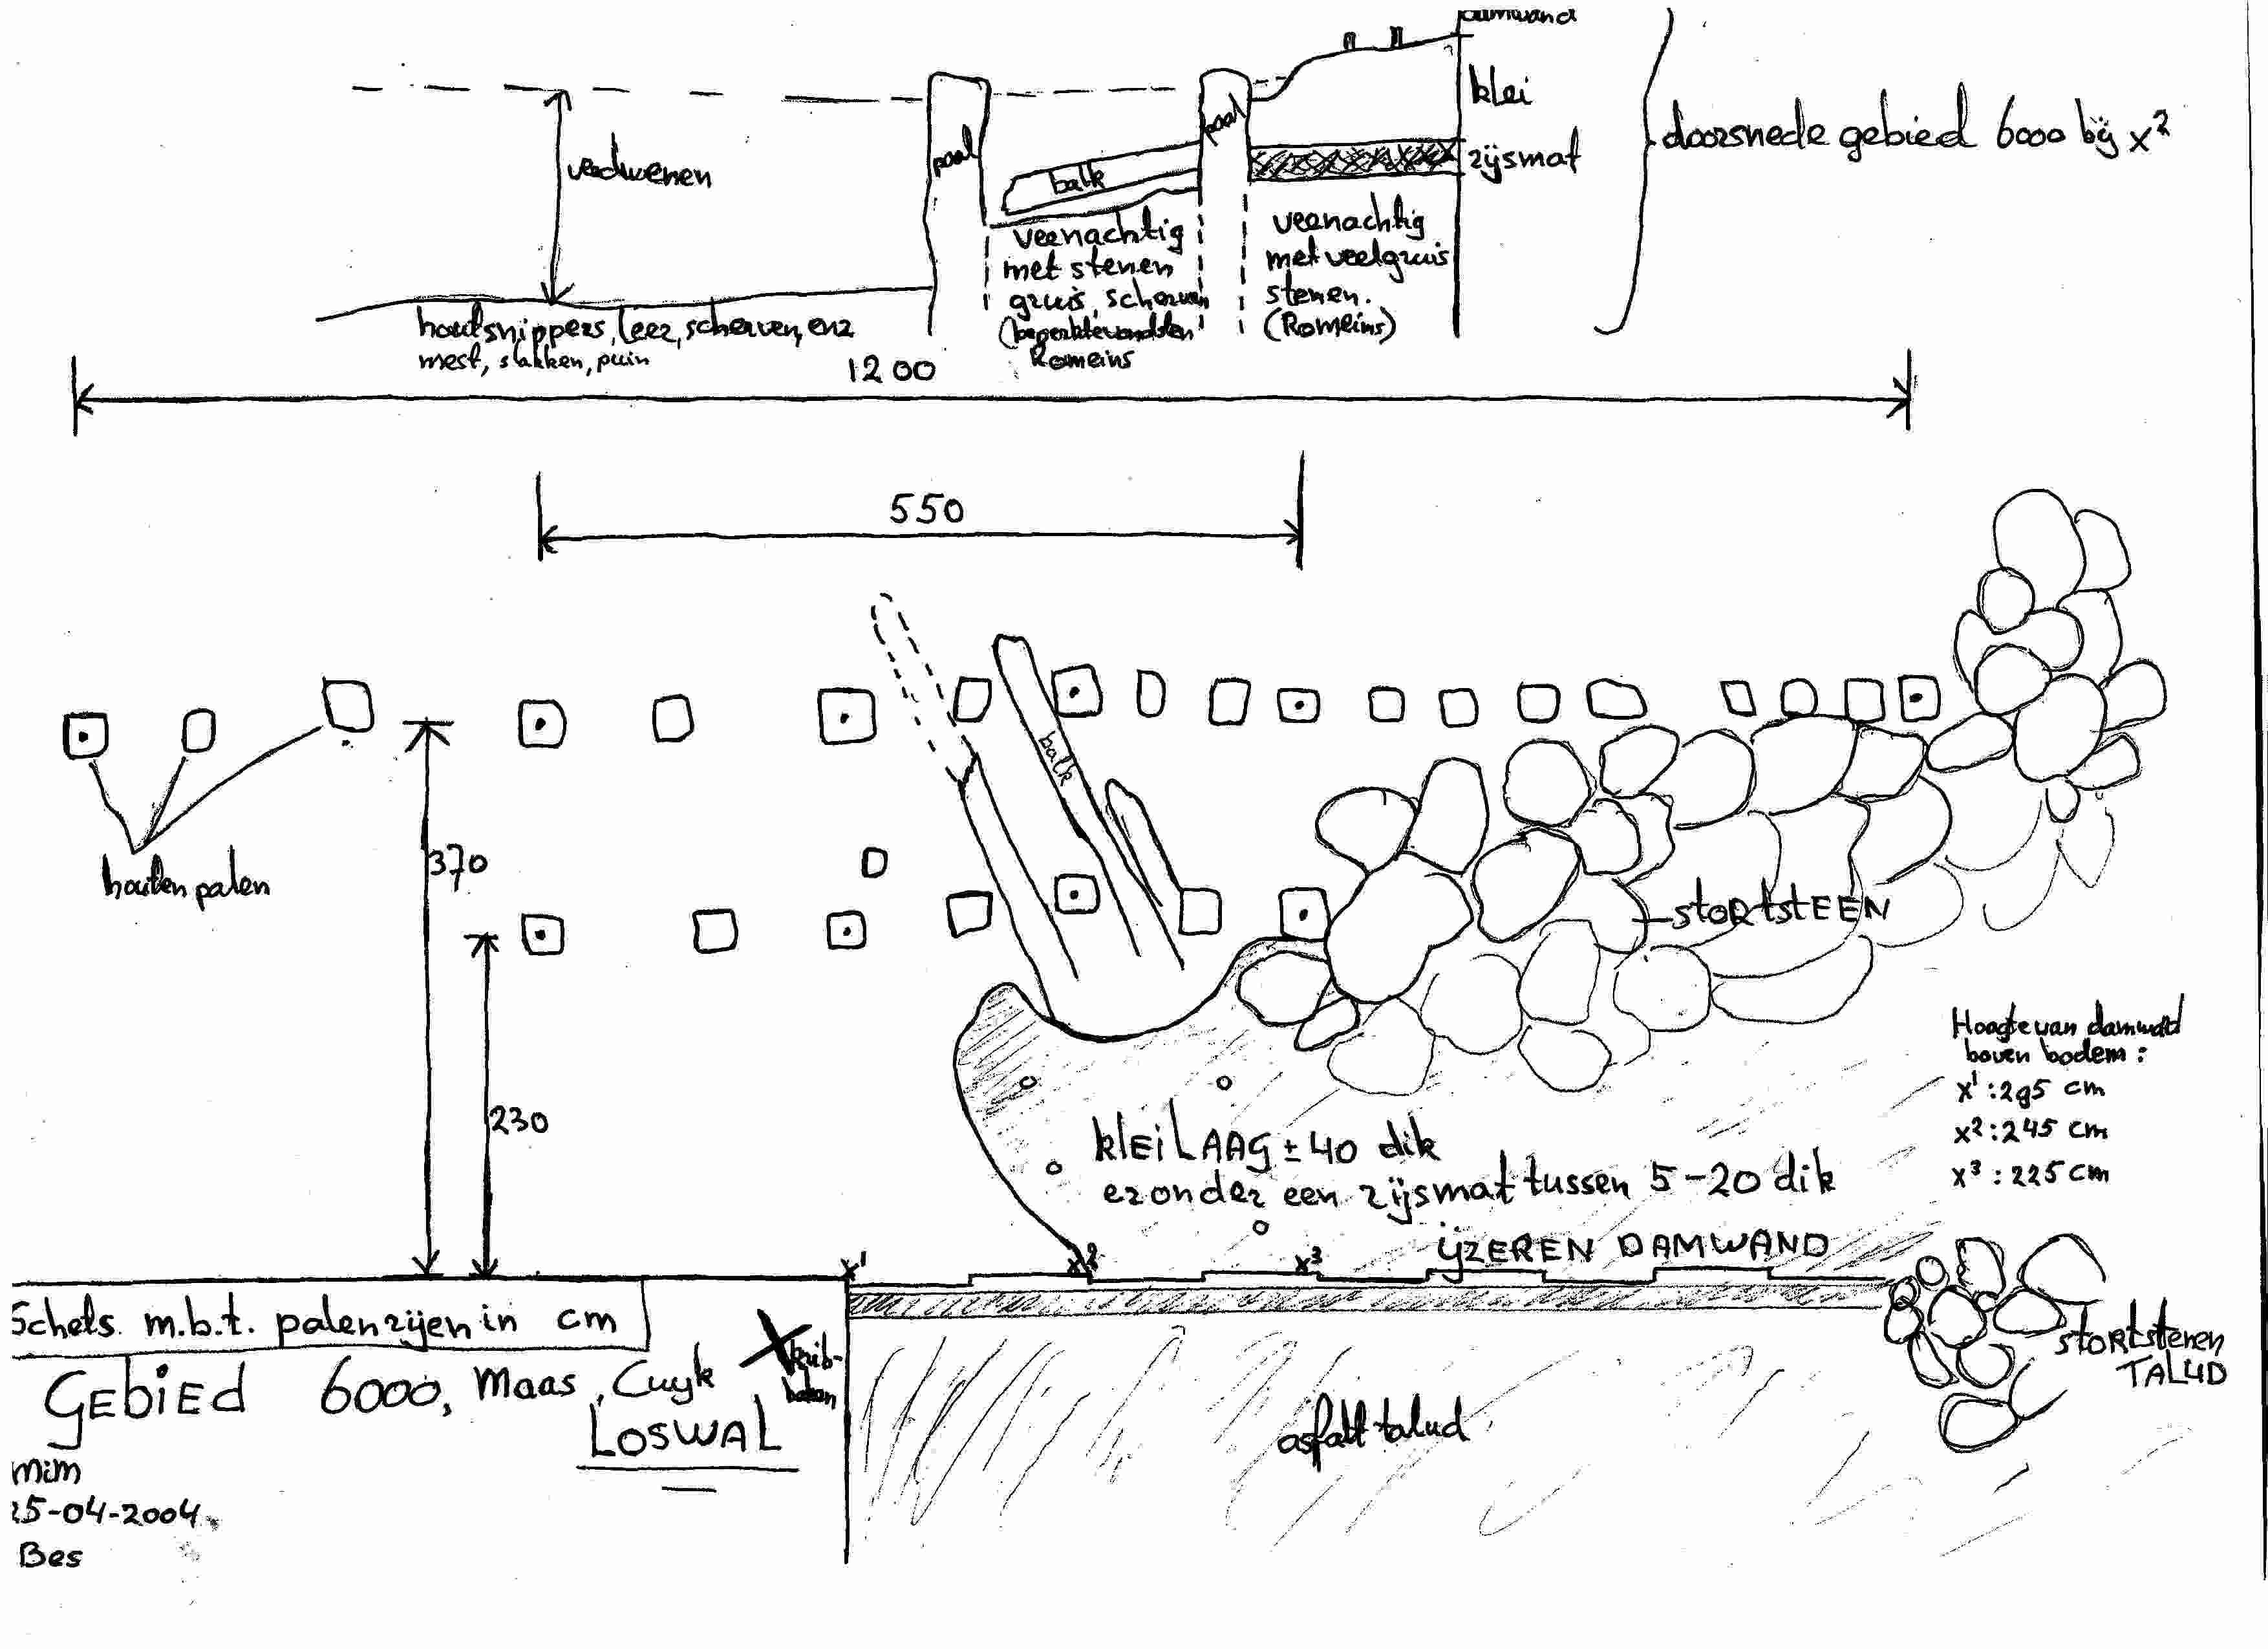 damwand
klei
zijsmat
doorsnede gebied 6000 bij x²
paal
paal
balk
verdwenen
veenachtig
met stenen
gruis, scherven
Romeins
veenachtig
met veel gruis
stenen.
(Romeins)
houtsnippers, leer, scherven, enz
mest, slakken, puin
1200
550
balk
houten palen
370
230
STORTSTEEN
Hoogte van damwad
boven bodem :
x¹ : 295 cm
x² : 245 cm
x³ : 225 cm
KLEILAAG ± 40 dik
eronder een rijsmat tussen 5-20 dik
IJZEREN DAMWAND
x¹
x²
x³
Schets m.b.t. palenrijen in cm
GEBIED 6000, Maas, Cuyk
LOSWAL
krib-
baken
asfalt talud
STORTstenen
TALUD
mim
25-04-2004
Bes